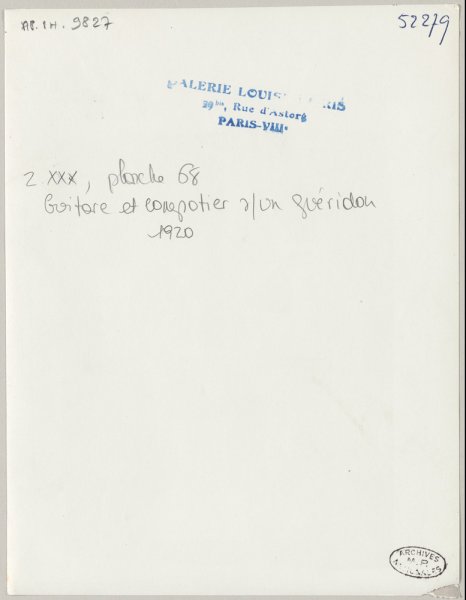 AP.PH. 9827
52279
GALERIE LOUISE LEIRIS
29 bis, Rue d'Astorg
PARIS-VIIIe
Z XXX, planche 68
Guitare et compotier s/un guéridon
1920
ARCHIVES
M.P.
NATIONALES